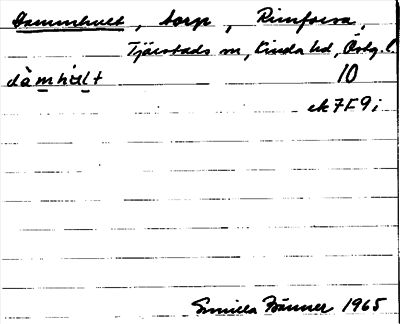 Dammhult, torp, Rimforsa,
Tjärstads sn, Kinda hd, Östg. l.
dàmhúlt 10
ek 7F9i
Gunilla Bänner 1965